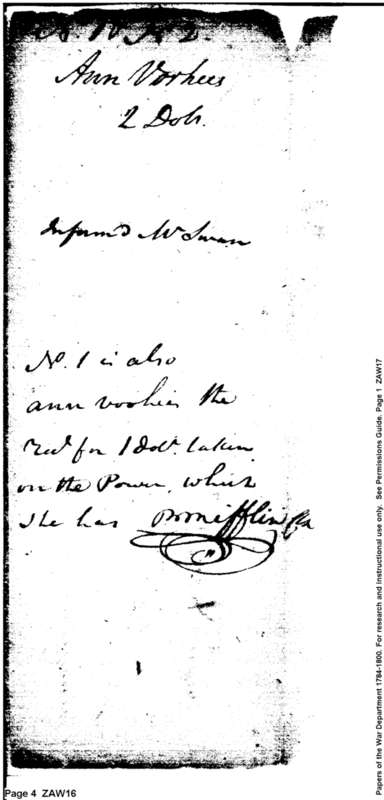 No. 2.
Ann Vorhees
2 Dols.
Inform'd Mr Swan
No. 1 is also
ann voohies the
for 1 Dolr. taken
on the Power, which
she has Bmifflin
Page 4 ZAW16
Papers of the War Department 1784-1800. For research and Instructional use only. See Permissions Guide. Page 1 ZAW17